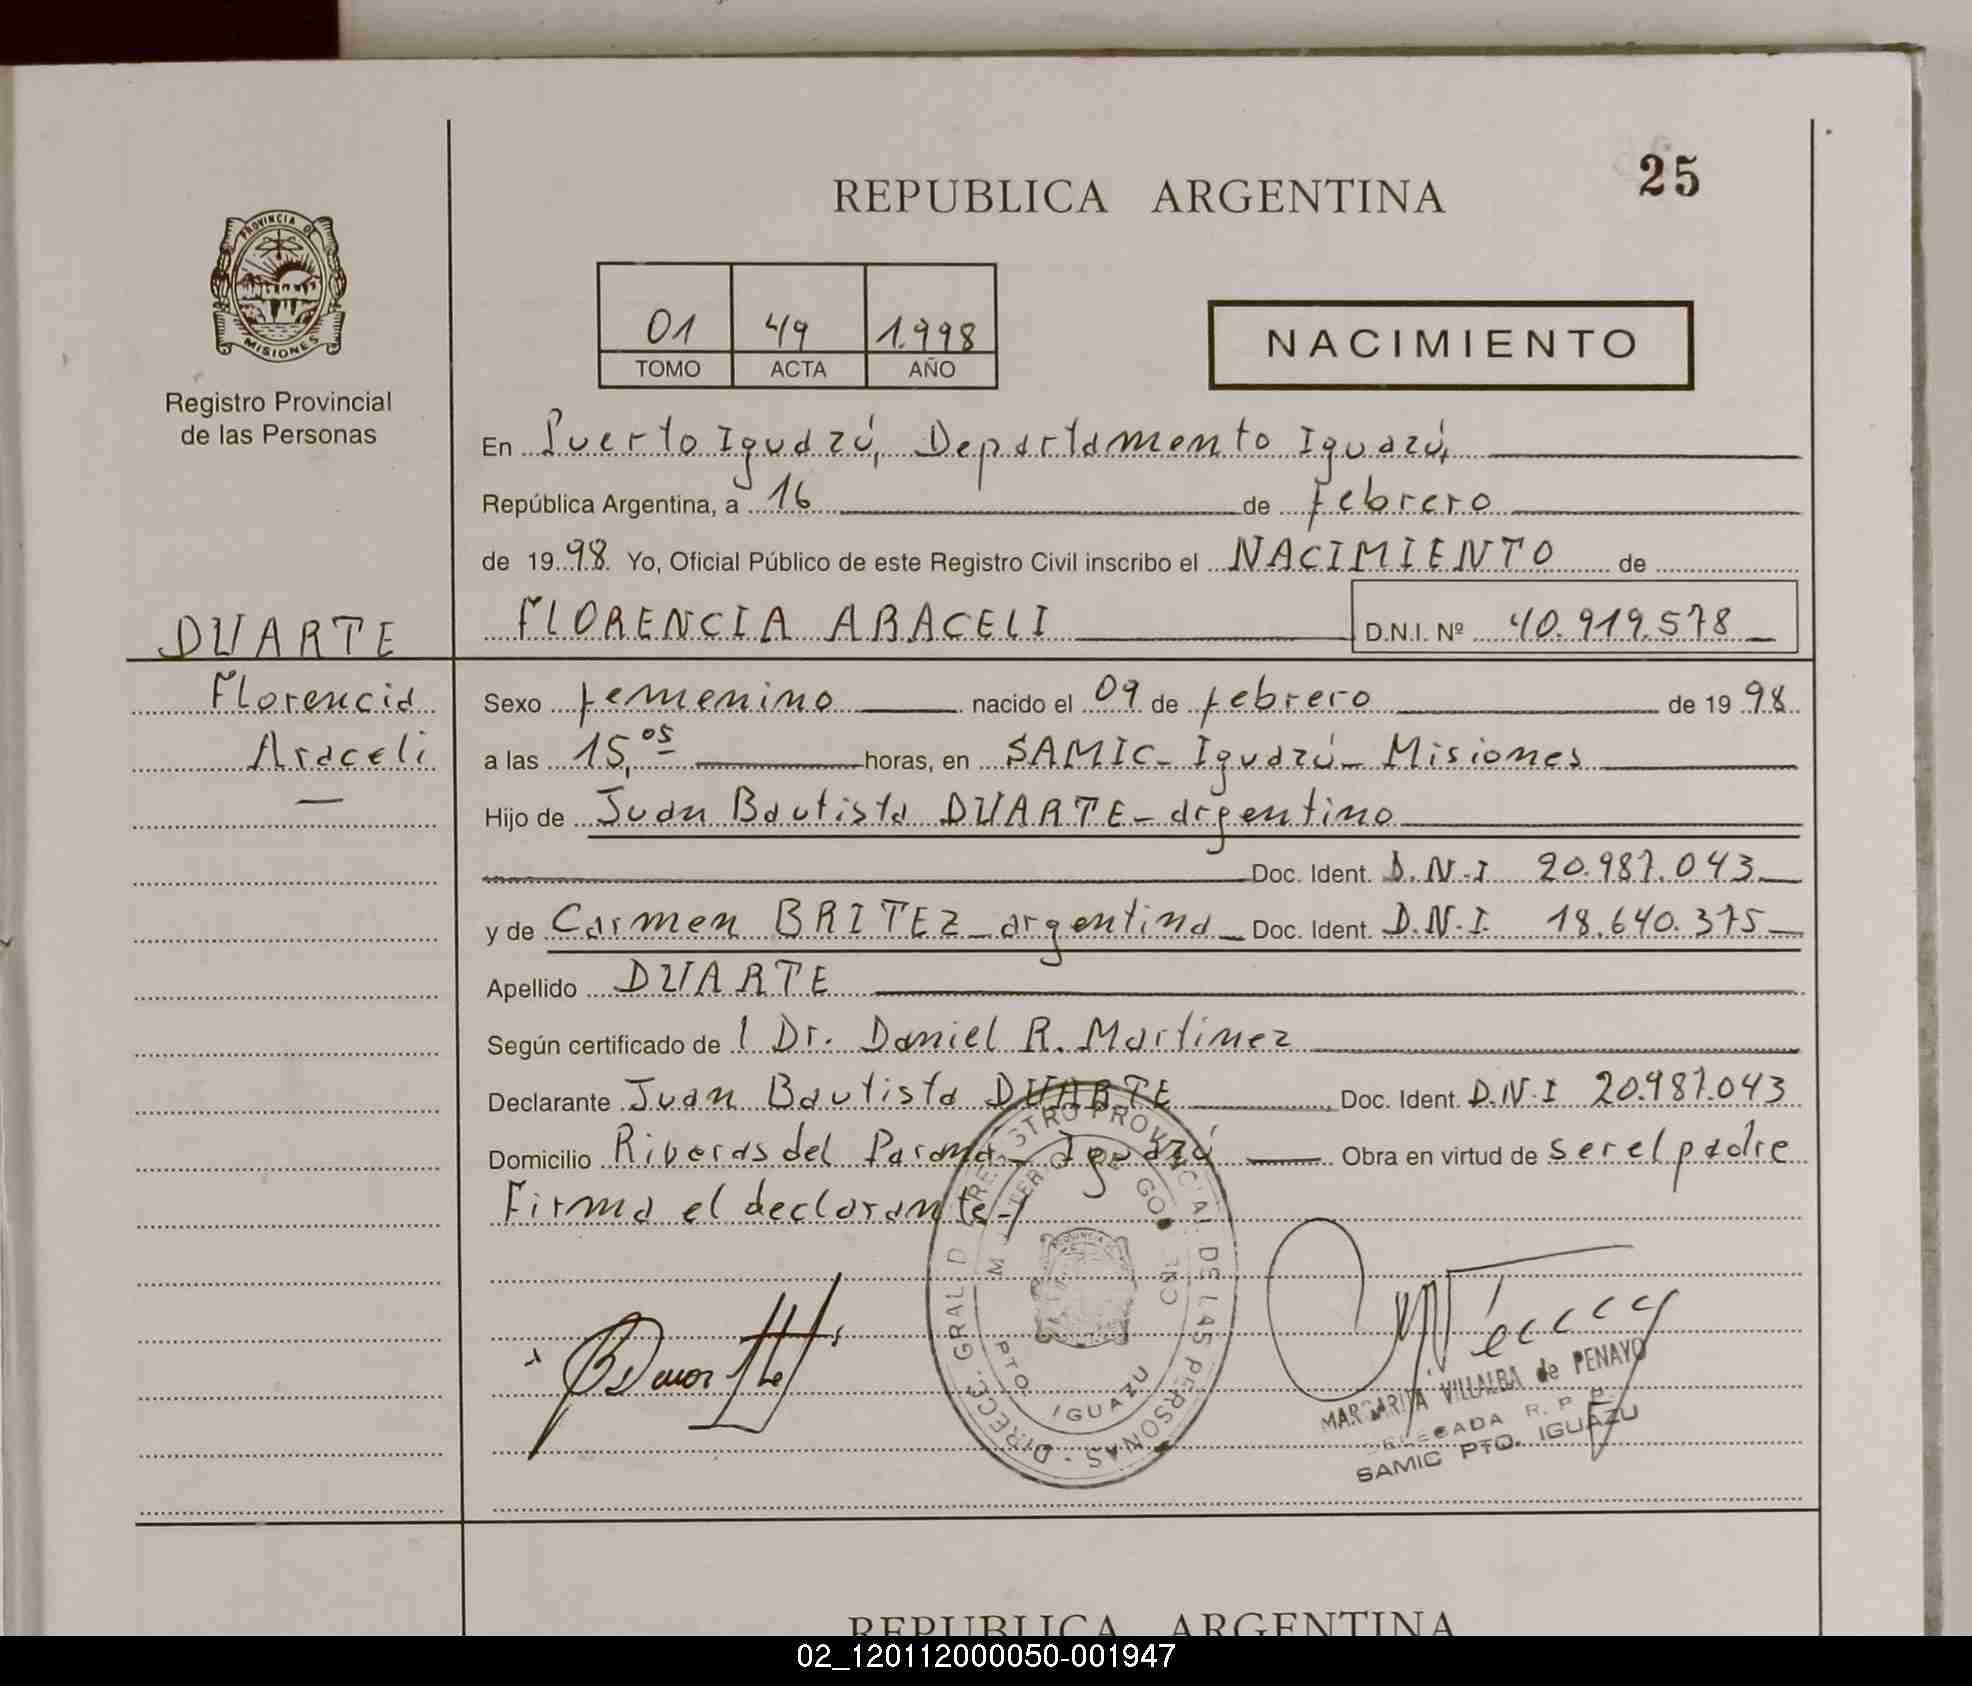 25
REPUBLICA ARGENTINA
PROVINCIA DE
MISIONES
Registro Provincial
de las Personas
01 49 1.998
TOMO ACTA AÑO
NACIMIENTO
En Puerto Iguazú, Departamento Iguazú,
República Argentina, a 16 de febrero
de 1998 Yo, Oficial Público de este Registro Civil inscribo el NACIMIENTO de
FLORENCIA ARACELI D.N.I. Nº 40.919.578
DUARTE
Florencia
Araceli
Sexo femenino nacido el 09 de febrero de 1998
a las 15,05 horas, en SAMIC - Iguazú - Misiones
Hijo de Juan Bautista DUARTE - argentino
Doc. Ident. D.N.I 20.987.043
y de Carmen BRITEZ - argentina - Doc. Ident. D.N.I. 18.640.375
Apellido DUARTE
Según certificado de l Dr. Daniel R. Martinez
Declarante Juan Bautista DUARTE Doc. Ident. D.N.I 20.987.043
Domicilio Riberas del Parana - Iguazú Obra en virtud de ser el padre
Firma el declarante -
DIRECC. GRAL. D REGISTRO PROVINCIAL DE LAS PERSONAS
PTO. IGUAZU
MARGARITA VILLALBA de PENAYO
DELEGADA R. P. P.
SAMIC PTO. IGUAZU
REPUBLICA ARGENTINA
02_120112000050-001947